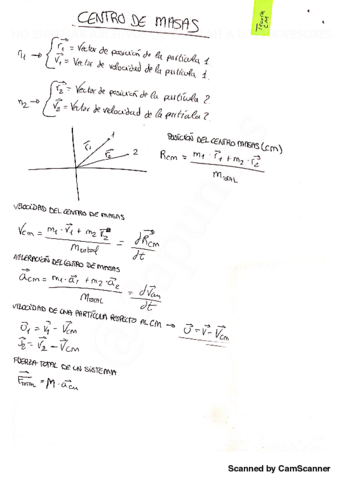 CENTRO DE MASAS
Teoría CM
m1 → { r1 = Vector de posición de la partícula 1
v1 = Vector de velocidad de la partícula 1.
m2 → { r2 = Vector de posición de la partícula 2.
v2 = Vector de velocidad de la partícula 2.
r1 1
r2 2
POSICIÓN DEL CENTRO MASAS (cm)
Rcm = m1 · r1 + m2 · r2 / MTOTAL
VELOCIDAD DEL CENTRO DE MASAS
Vcm = m1 · v1 + m2 r2 / Mtotal = dRcm / dt
ACELERACIÓN DEL CENTRO DE MASAS
acm = m1 · a1 + m2 · a2 / MTOTAL = dVcm / dt
VELOCIDAD DE UNA PARTÍCULA RESPECTO AL CM → U = V - Vcm
U1 = V1 - Vcm
= V2 - Vcm
FUERZA TOTAL DE UN SISTEMA
Ftotal = M · acm
Scanned by CamScanner